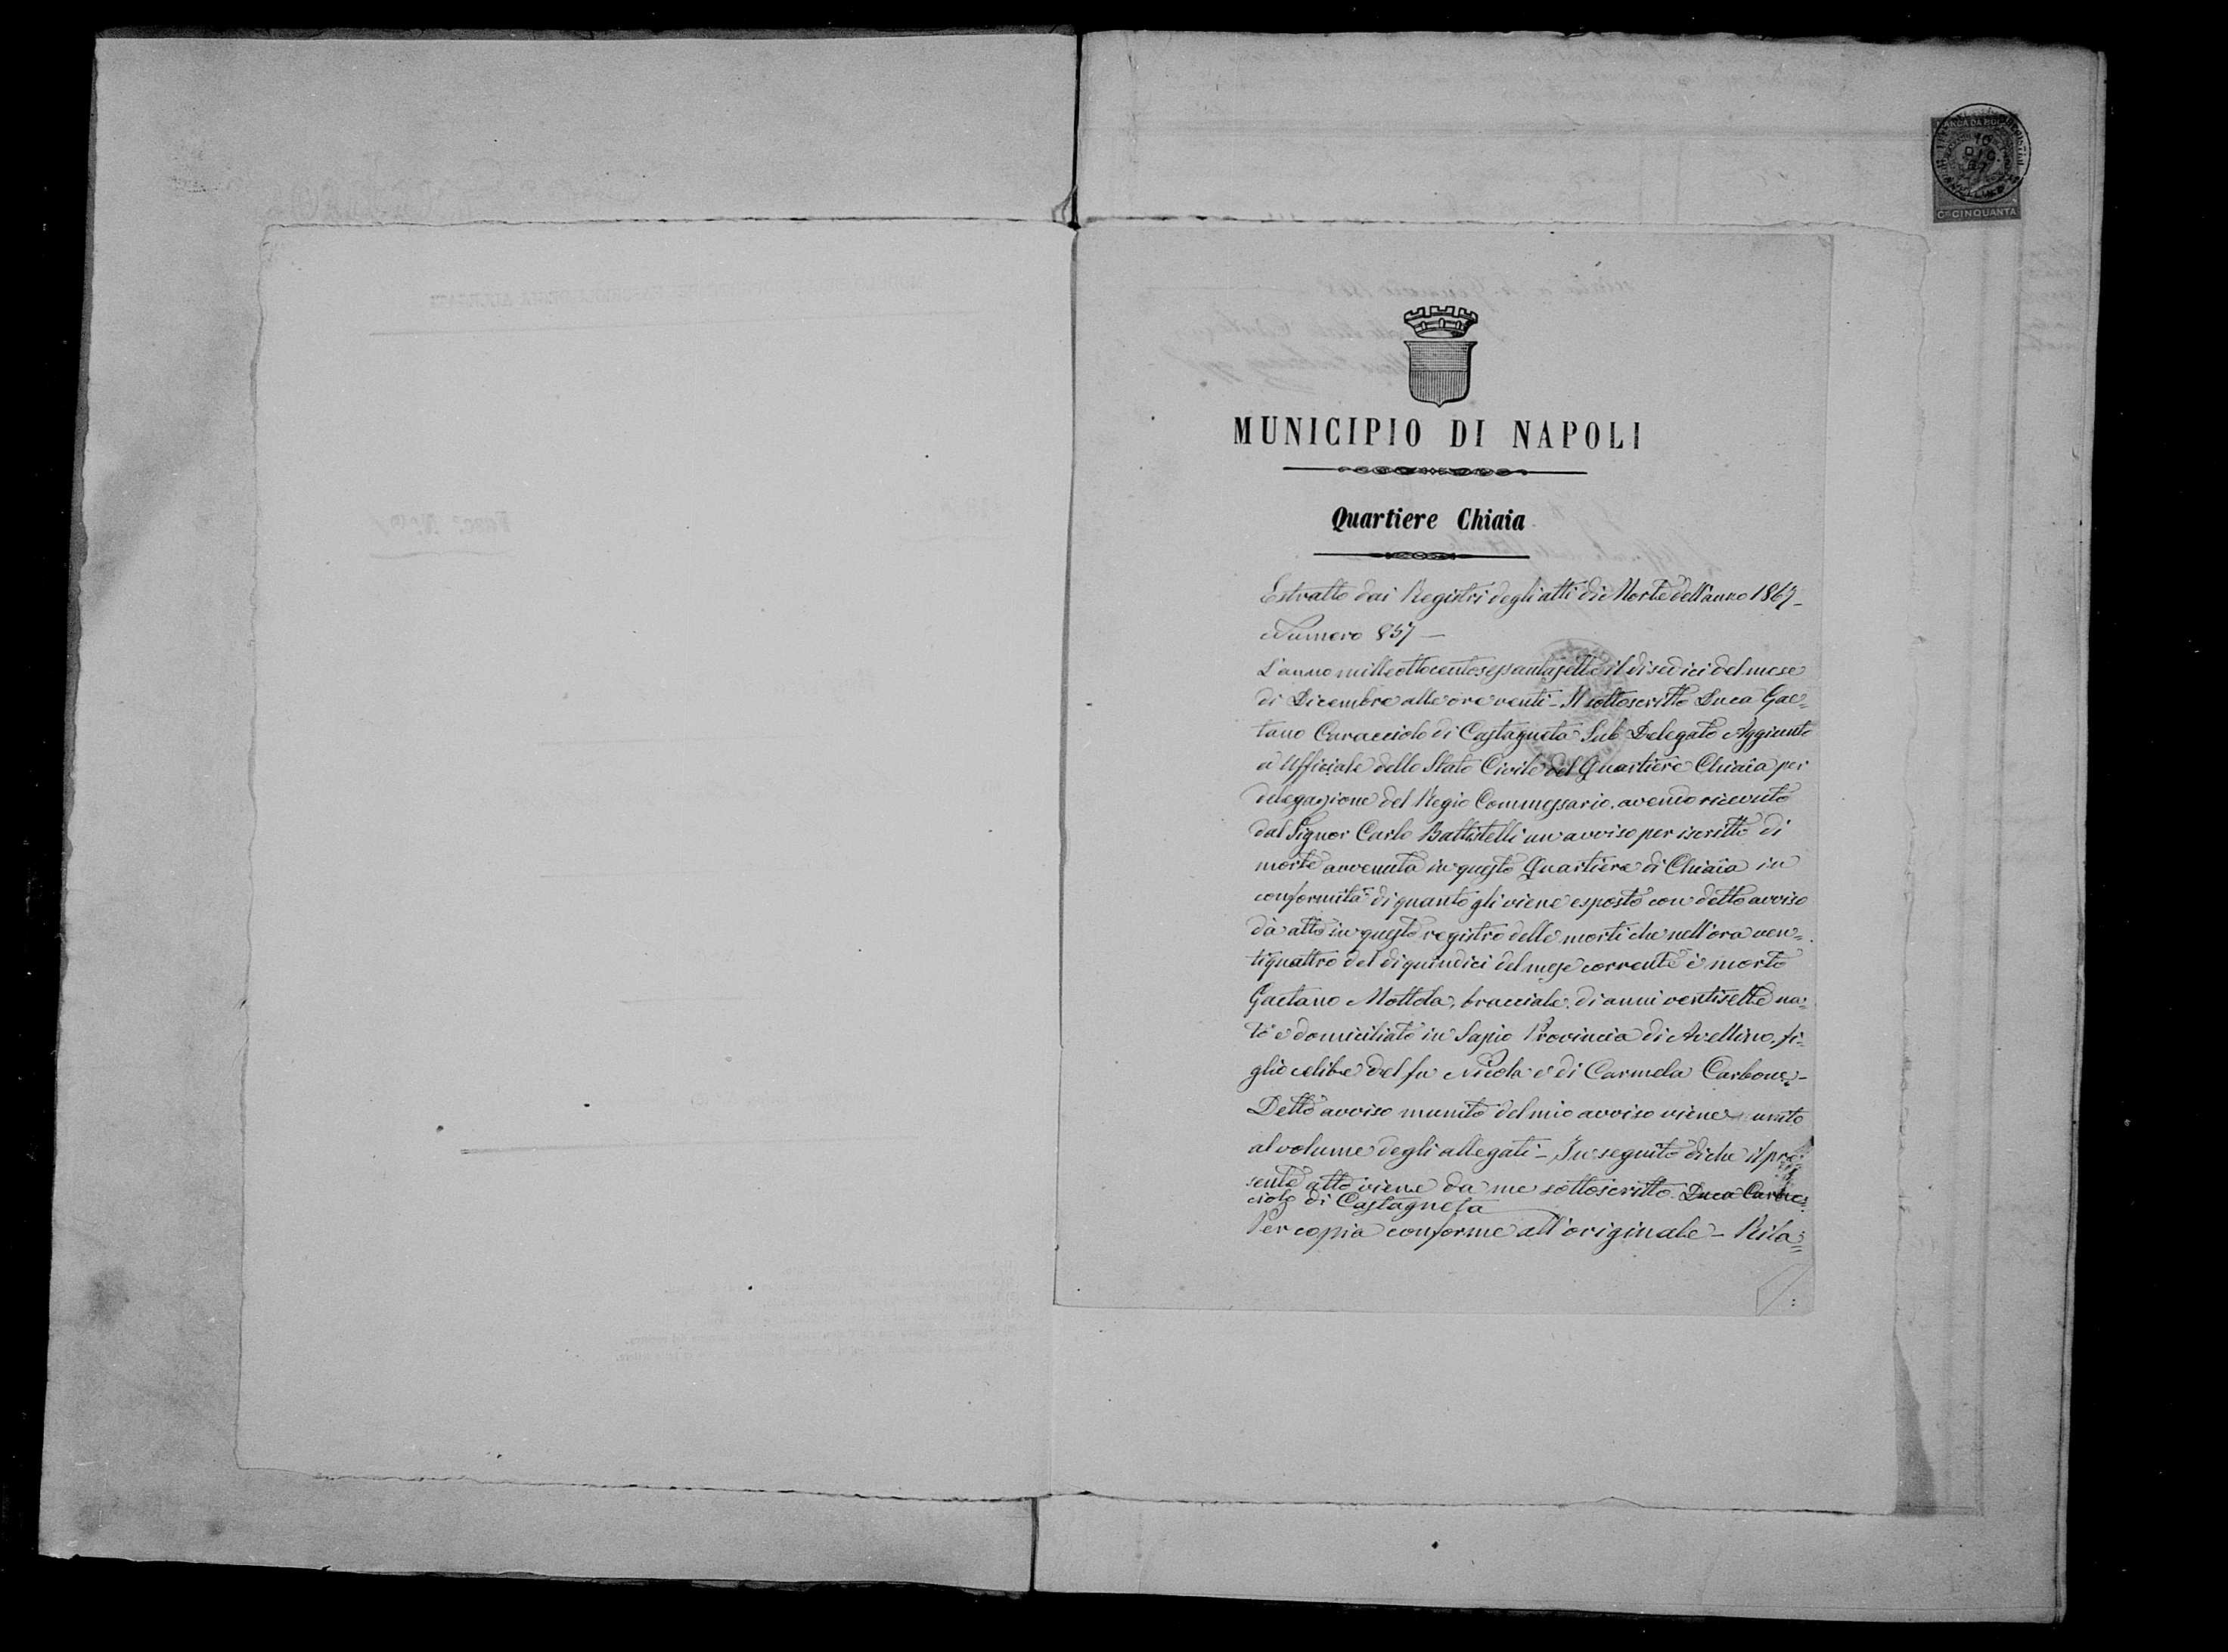 MARCA DA BOLLO
16
DIC
67
Cmi CINQUANTA
MUNICIPIO DI NAPOLI
Quartiere Chiaia
Estratto dai Registri degli atti di Morte dell'anno 1867_
Numero 857 —
L'anno milleottocentosessantasette il di sedici del mese
di Dicembre alle ore venti - Il sottoscritto Duca Gae=
tano Caracciolo di Castagneta Sub Delegato Aggiunto
ed Uffiziale dello Stato Civile del Quartiere Chiaia per
delegazione del Regio Commessario, avendo ricevuto
dal Signor Carlo Battistelli un avviso per iscritto di
morte avvenuta in questo Quartiere di Chiaia in
conformità di quanto gli viene esposto con detto avviso
dà atto in questo registro delle morti che nell'ora ven=
tiquattro del di quindici del mese corrente è morto
Gaetano Mottola, bracciale, di anni ventisette na=
to e domiciliato in Provincia di Avellino, fi=
glio celibe del fu Nicola e di Carmela Carbone -
Detto avviso munito del mio avviso viene unito
al volume degli allegati - In seguito di che il pre=
sente atto viene da me sottoscritto. Duca Carac=
ciolo di Castagneta
Per copia conforme all'originale - Rila=